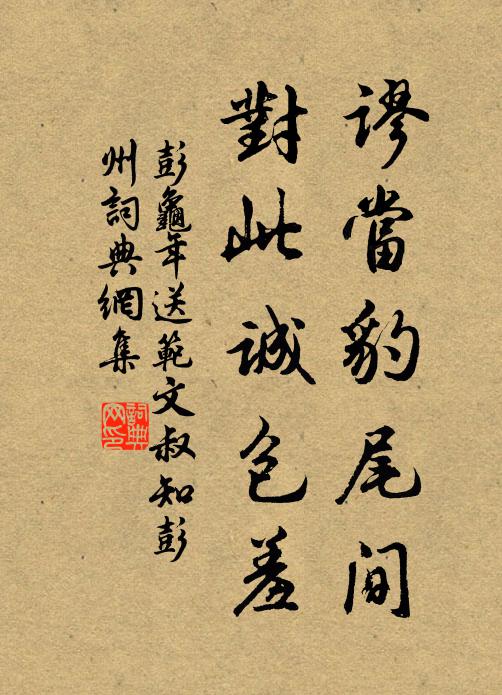 謬當豹尾間
對此誠包羞
彭龜年送範文叔知彭
州詞典網集
詞典网印